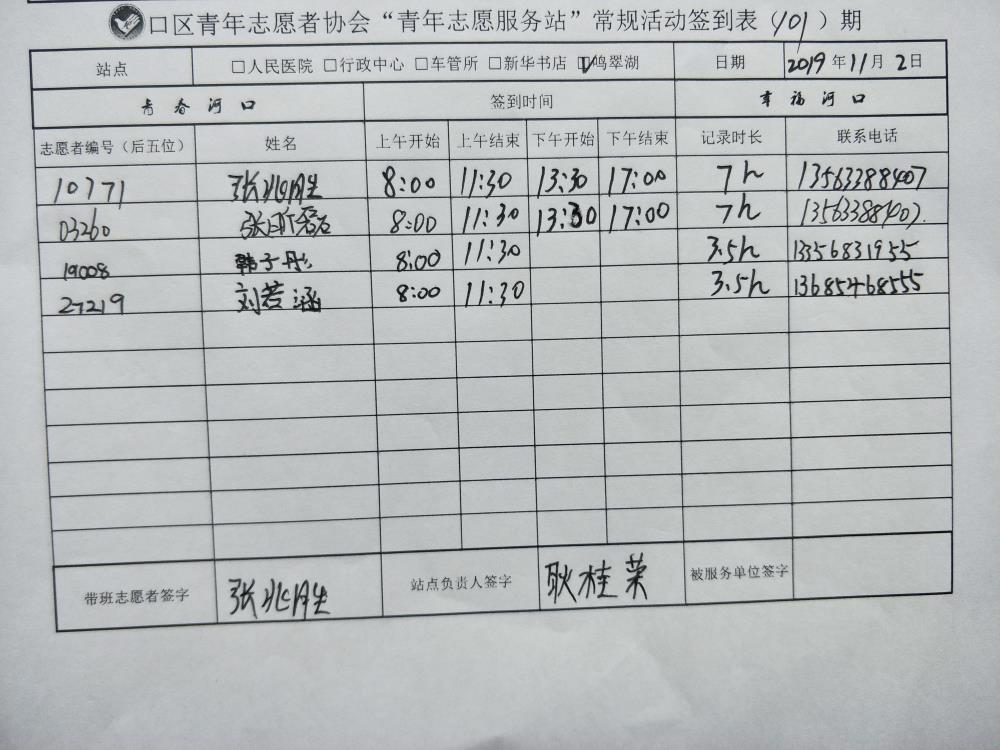 口区青年志愿者协会“青年志愿服务站”常规活动签到表（101）期
站点 □人民医院 □行政中心 □车管所 □新华书店 ☑鸣翠湖 日期 2019年11月2日
青春河口 签到时间 幸福河口
志愿者编号（后五位） 姓名 上午开始 上午结束 下午开始 下午结束 记录时长 联系电话
10771 张兆胜 8:00 11:30 13:30 17:00 7h 13563388407
03260 8:00 11:30 13:30 17:00 7h 13563388407
19008 韩子彤 8:00 11:30 3.5h 13356831955
27219 刘若涵 8:00 11:30 3.5h 13685468555
带班志愿者签字 张兆胜 站点负责人签字 耿桂荣 被服务单位签字